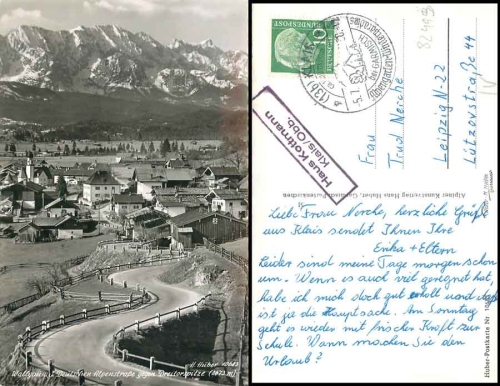 Wallgau, a. d. Deutschen Alpenstraße gegen Dreitorspitze (2673 m)
H. Huber 10685
10
DEUTSCHE
BUNDESPOST
(13b) KLAIS
Haus Kottmann
Klais/Obb.
82493
Frau
Trud Nerche
Leipzig N-22
Lützovstraße 44
Alpiner Kunstverlag Hans Huber, Garmisch-Partenkirchen
Huber-Postkarte Nr.
Liebe Frau Nerche, herzliche Grüße
aus Klais sendet Ihnen Ihre
Erika + Eltern
Leider sind meine Tage morgen schon
um. Wenn es auch viel geregnet hat,
habe ich mich doch gut erholt und das
ist ja die Hauptsache. Am Sonntag
geht es wieder mit frischer Kraft zur
Schule. Wann machen Sie den
Urlaub?